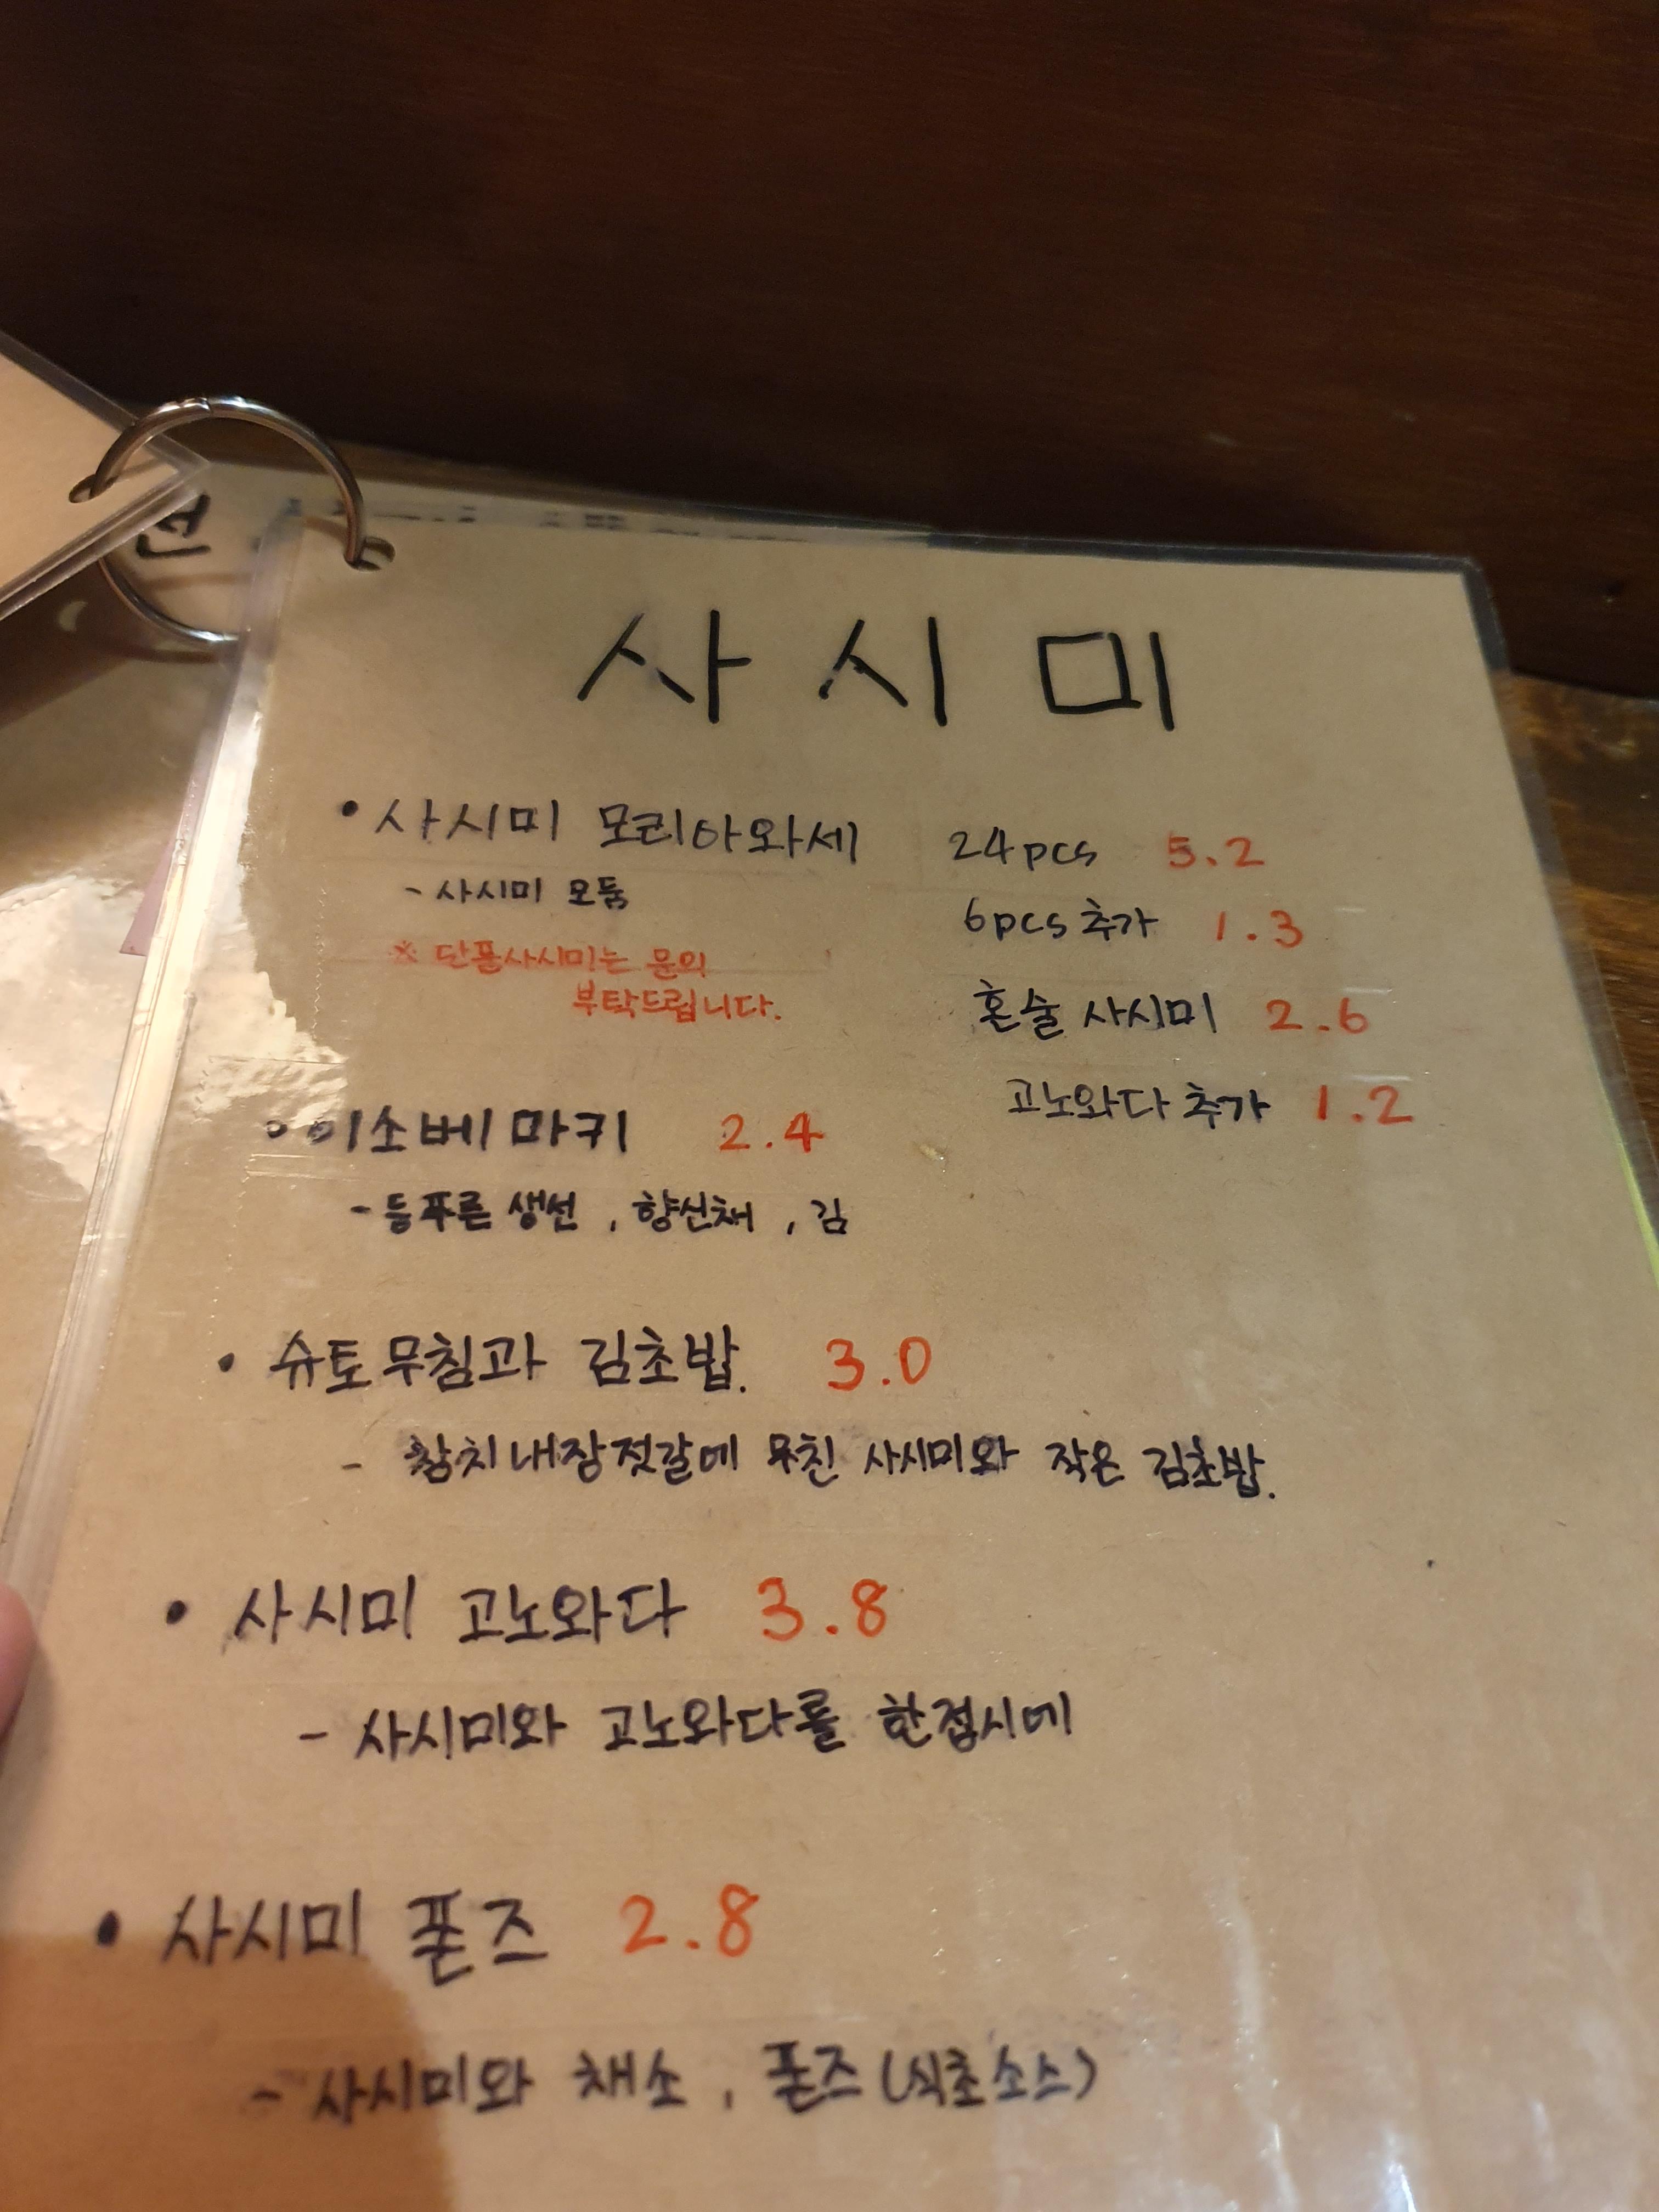 사시미
• 사시미 모리아와세 24pcs 5.2
- 사시미 모둠
6pcs 추가 1.3
※ 단품사시미는 문의
부탁드립니다.
혼술 사시미 2.6
고노와다 추가 1.2
• 이소베 마키 2.4
- 등푸른 생선, 향신채, 김
• 슈토무침과 김초밥. 3.0
- 참치내장젓갈에 무친 사시미와 작은 김초밥.
• 사시미 고노와다 3.8
- 사시미와 고노와다를 한접시에
• 사시미 폰즈 2.8
- 사시미와 채소, 폰즈(식초소스)